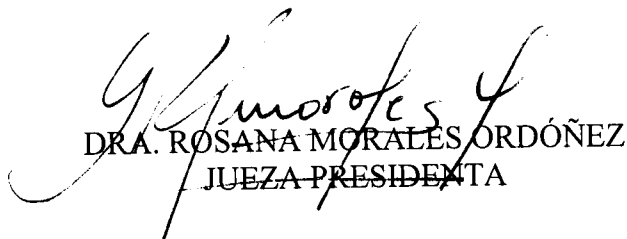 DRA. ROSANA MORALES ORDÓÑEZ
JUEZA PRESIDENTA